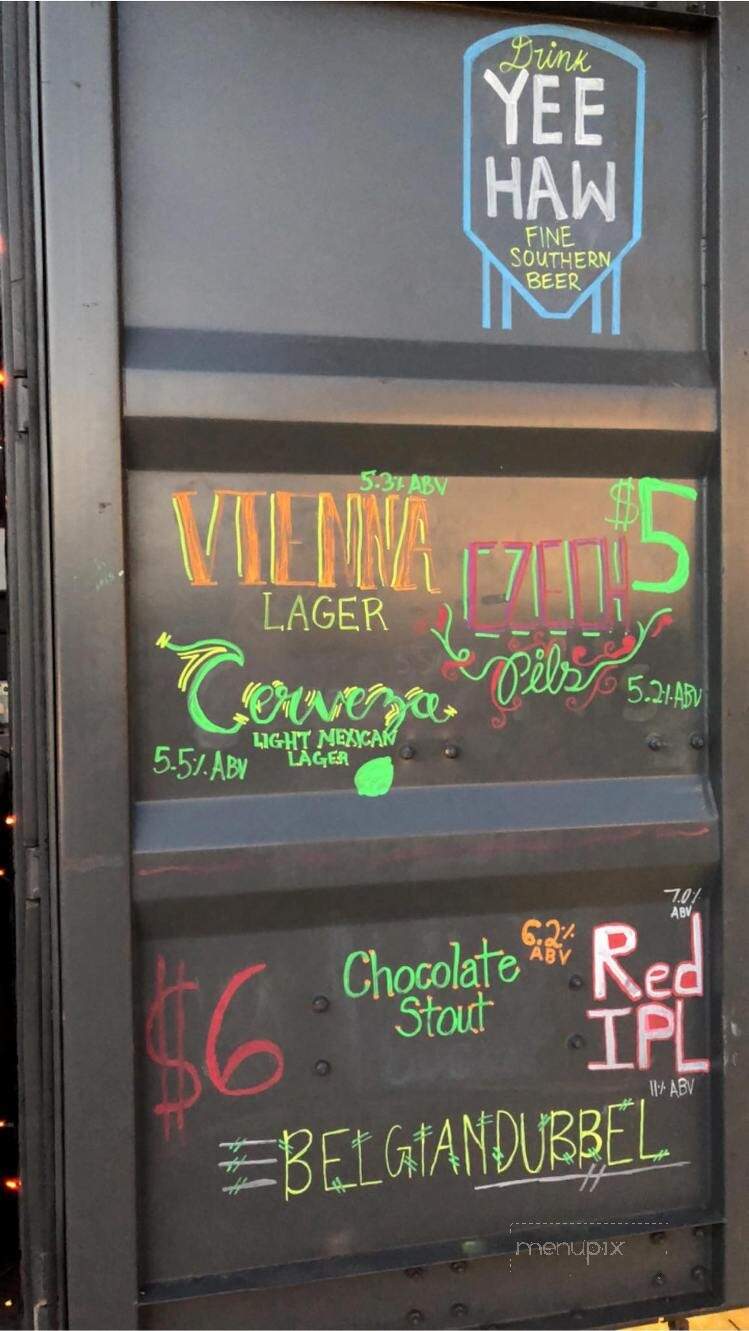 Drink
YEE
HAW
FINE
SOUTHERN
BEER
5.3% ABV
VIENNA
LAGER
$5
CZECH
Pils
5.2% ABV
Cerveza
LIGHT MEXICAN
LAGER
5.5% ABV
$6
Chocolate
Stout
6.2%
ABV
7.0%
ABV
Red
IPL
11% ABV
BELGIAN DUBBEL
menupix